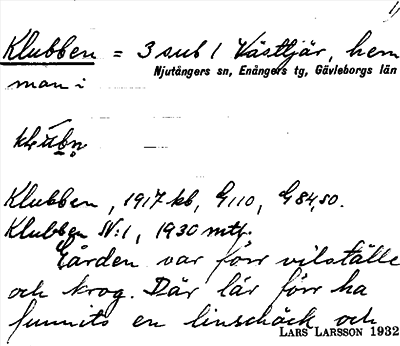 Klubben = 3 sub 1 Västtjär, hem
Njutångers sn, Enångers tg, Gävleborgs län
man i
Klubben, 1917 kb, G110, G84,50.
Klubben SV:1, 1930 mtf.
Gården var förr vilställe
och krog. Där lär förr ha
funnits en linschäck och
LARS LARSSON 1932